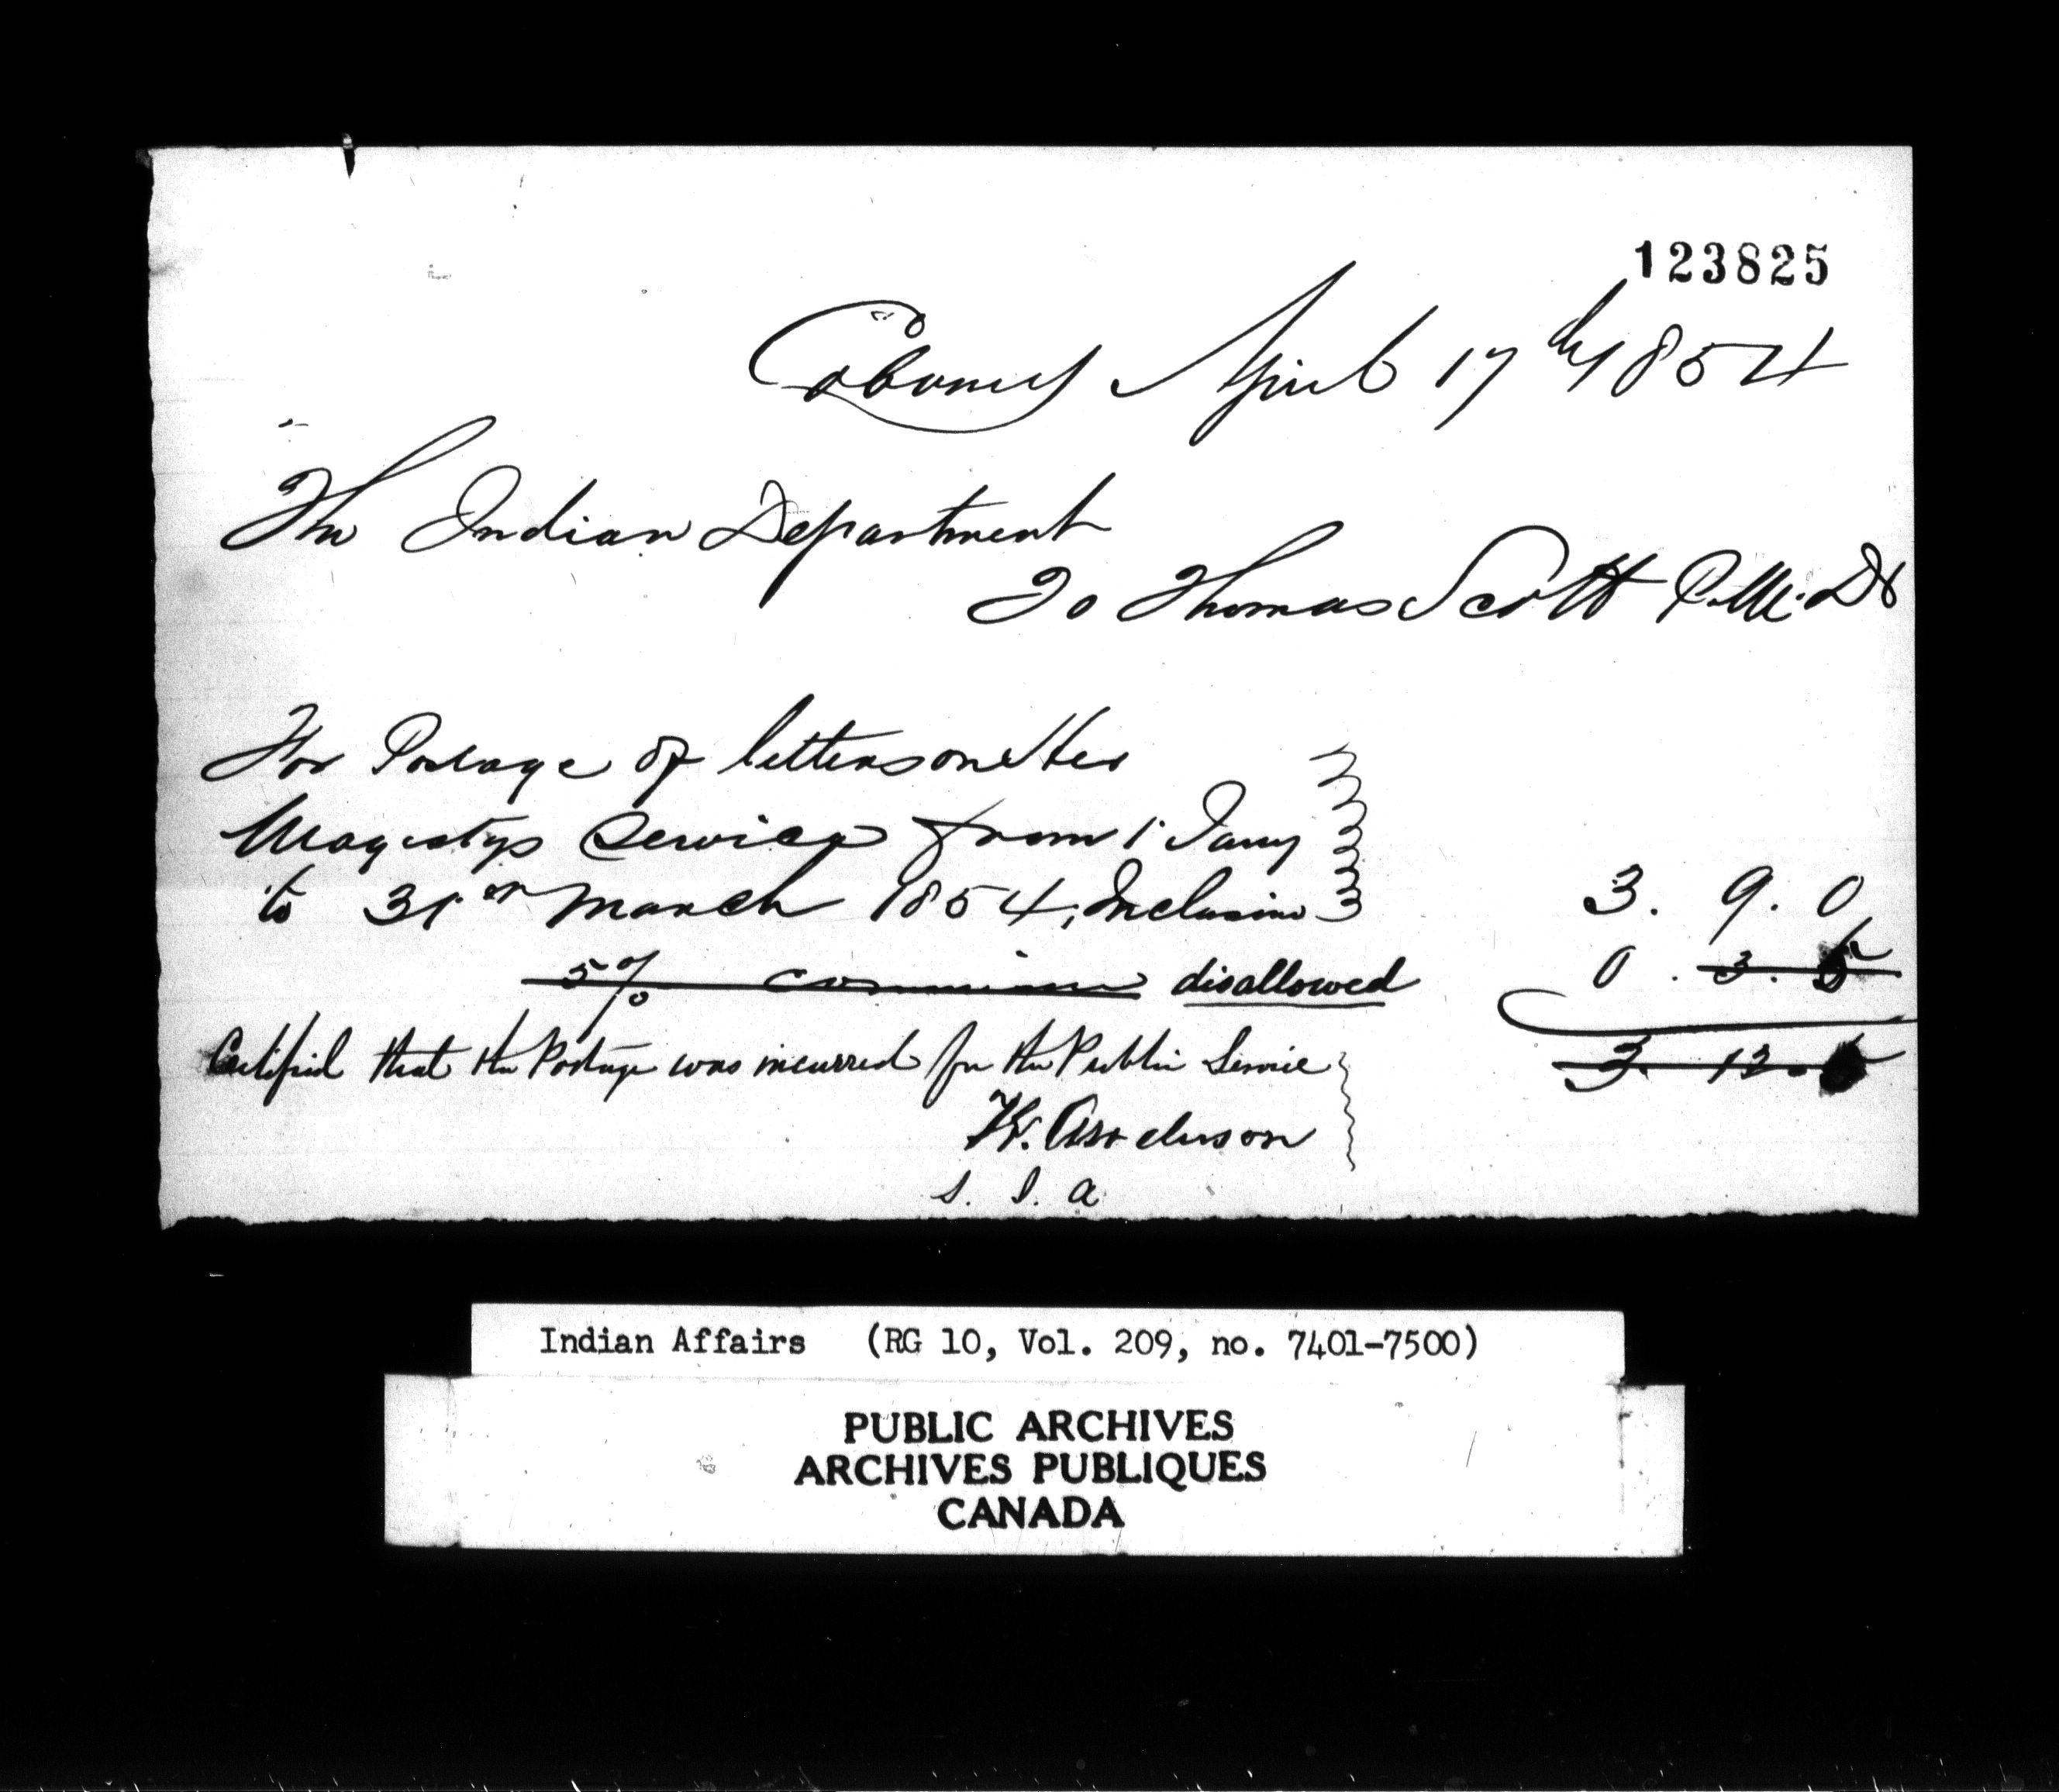 123825
Colborne April 17th 1854
The Indian Department
To Thomas Scott P.M. Dr
For Postage of letters on Her
Magestys Service from 1 Jany
to 31st March 1854, Inclusive 3. 9. 0
5% disallowed 0. 3.
Certified that the Postage was incurred for the Public Service 3. 12.
W. Anderson
S. I. A
Indian Affairs (RG 10, Vol. 209, no. 7401-7500)
PUBLIC ARCHIVES
ARCHIVES PUBLIQUES
CANADA